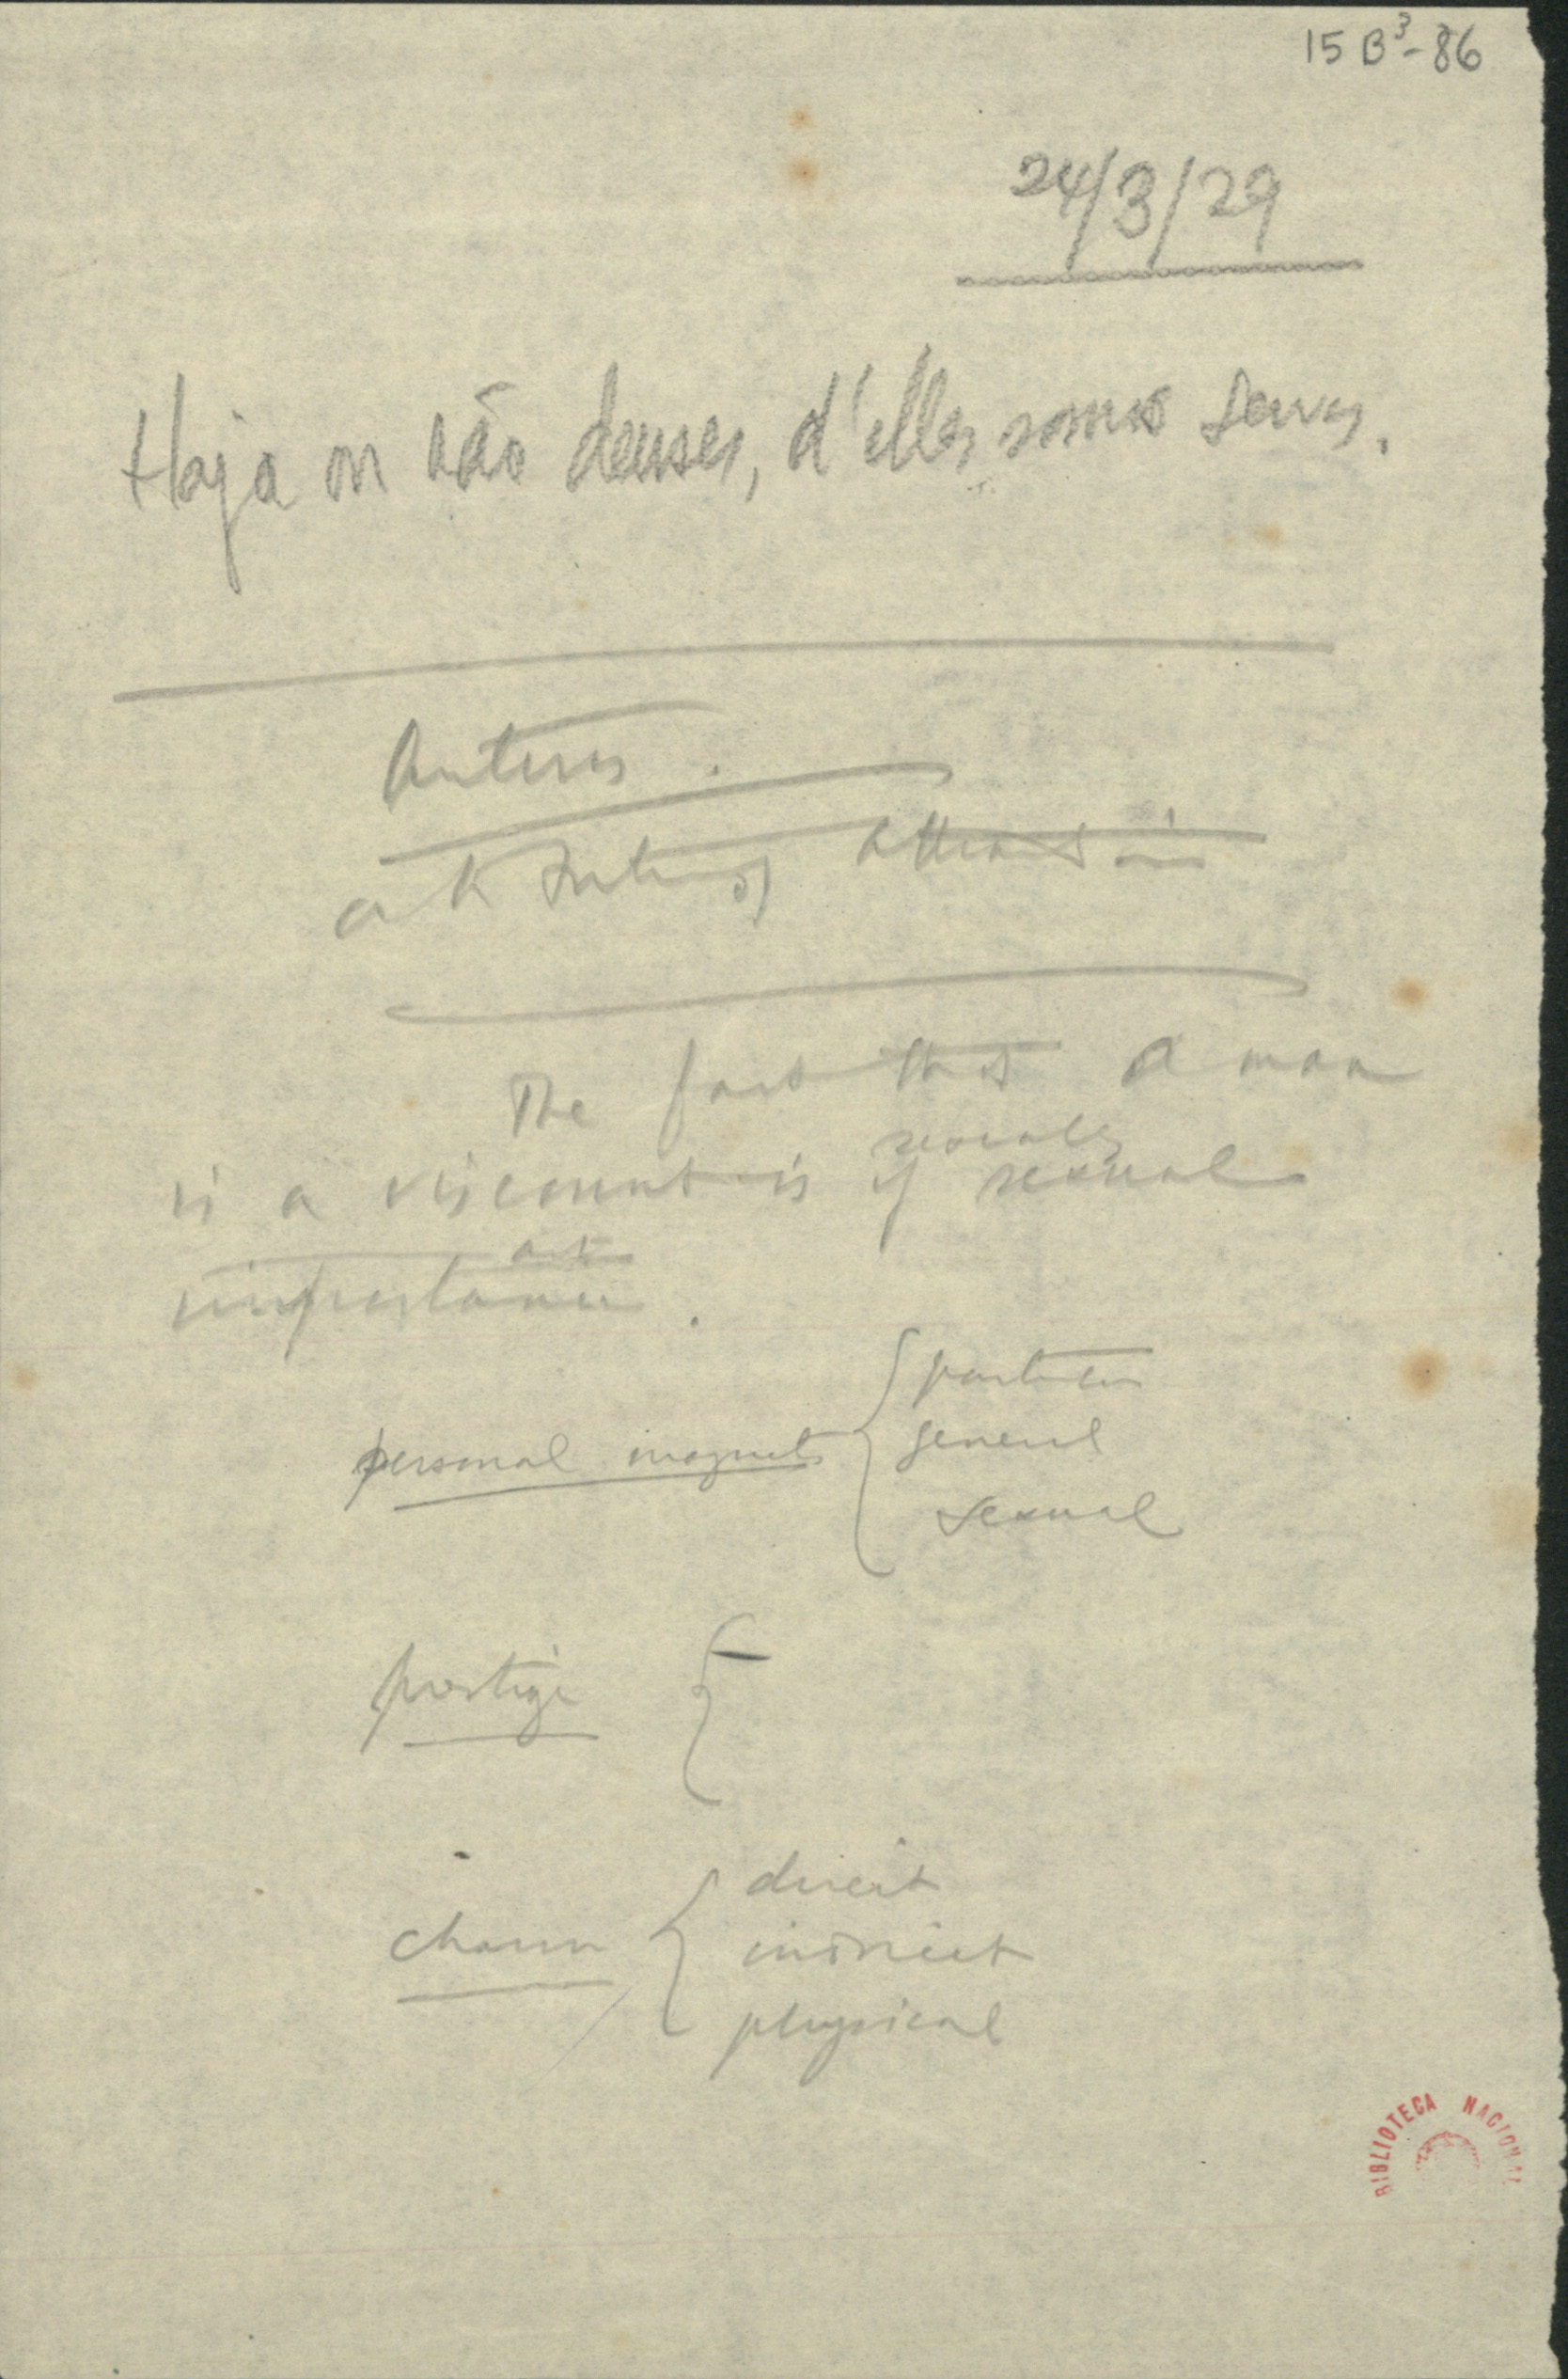 15 B³-86
24/3/29
Haja ou não deuses, d'elles somos servos.
Anteros.
or the Future of Attraction
The fact that a man
is a viscount is of sexual
sexually
importance.
ant
personal magnet {particular
general
sexual
prestige {–
charm {direct
indirect
physical
BIBLIOTECA NACIONAL